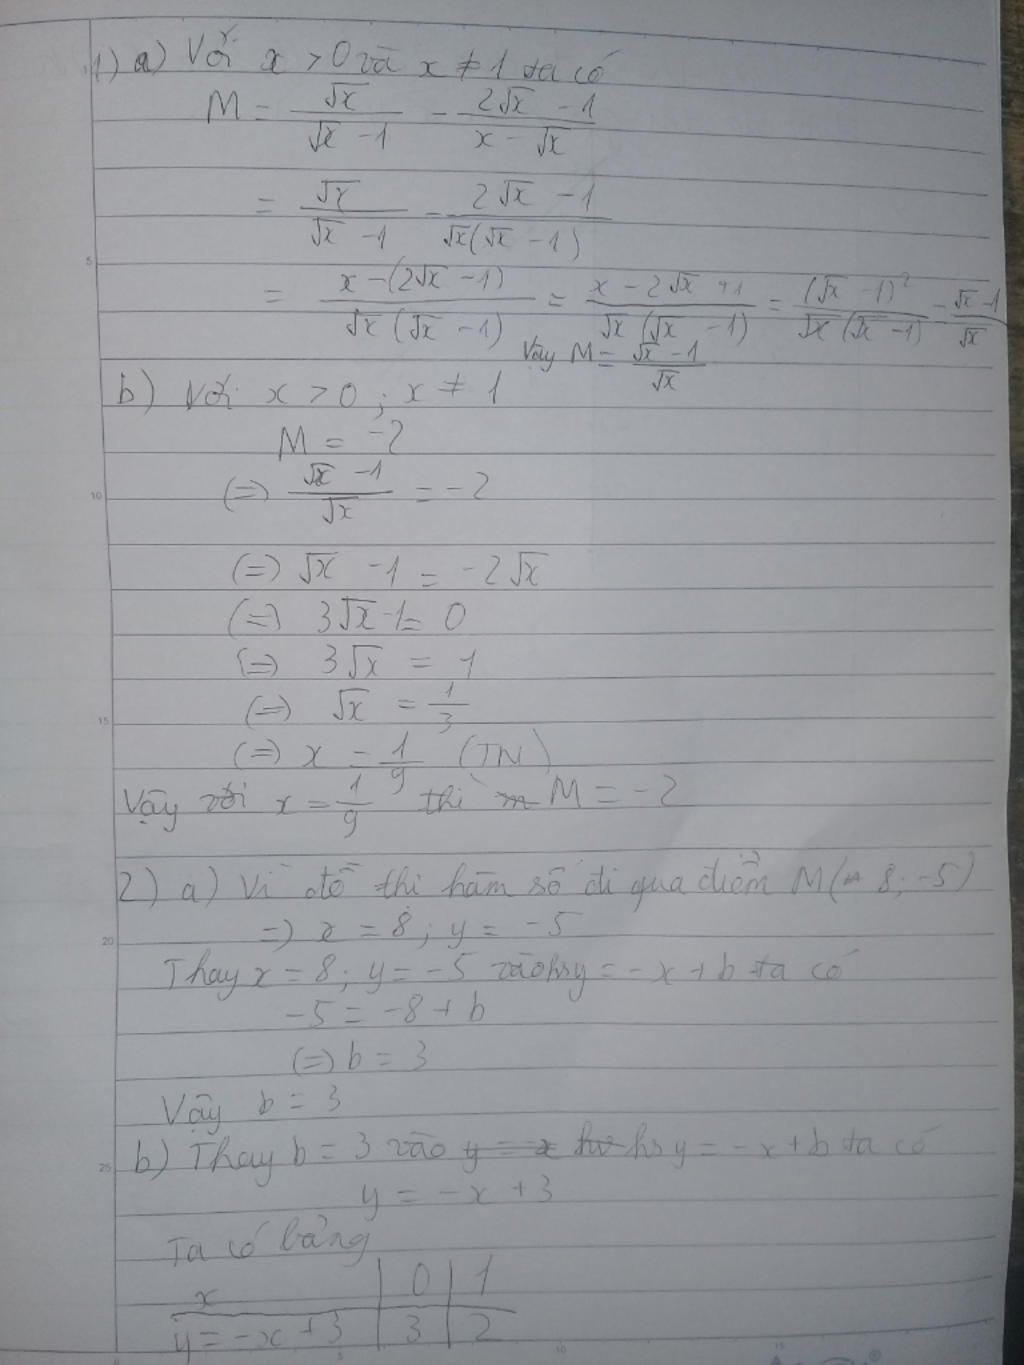 1) a) Với x > 0 và x ≠ 1 ta có
M = √x / (√x - 1) - (2√x - 1) / (x - √x)
= √x / (√x - 1) - (2√x - 1) / (√x(√x - 1))
= (x - (2√x - 1)) / (√x(√x - 1)) = (x - 2√x + 1) / (√x(√x - 1)) = (√x - 1)² / (√x(√x - 1)) = (√x - 1) / √x
Vậy M = (√x - 1) / √x
b) Với x > 0 ; x ≠ 1
M = -2
(=) (√x - 1) / √x = -2
(=) √x - 1 = -2√x
(=) 3√x - 1 = 0
(=) 3√x = 1
(=) √x = 1/3
(=) x = 1/9 (TN)
Vậy với x = 1/9 thì M = -2
2) a) Vì đồ thị hàm số đi qua điểm M( 8 ; -5)
=) x = 8 ; y = -5
Thay x = 8 ; y = -5 vào hs y = -x + b ta có
-5 = -8 + b
(=) b = 3
Vậy b = 3
b) Thay b = 3 vào y = -x hs y = -x + b ta có
y = -x + 3
Ta có bảng
x 0 1
y = -x + 3 3 2
5
10
15
20
25
5
10
15